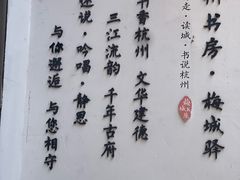 州书房·梅城驿
走·读城·书说杭州
书香杭州 文华建德
三江流韵 千年古府
述说,吟唱,静思
与你邂逅 与您相守